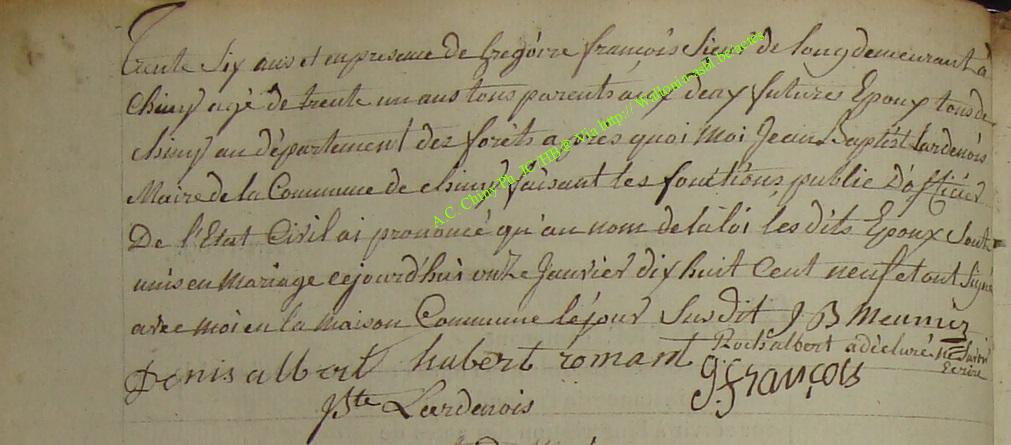 trente six ans et en presence de Gregoire françois Sieur de long demeurant à
Chiny agé de trente un ans tous parents aux deux futures Epoux tous de
chiny au département des forêts apres quoi Moi Jean Baptist Lardenois
Maire de la Commune de chiny faisant les fonctions public D'officier
De l'Etat Civil ai prononcé qu'au nom de la loi les dits Epoux Sont
unis en Mariage cejourd'hui onze Janvier dix huit Cent neuf et ont Signé
avec moi en la Maison Commune le jour Susdit J B Meunier
Denis albert hubert romant Roch albert a déclaré ne Savoir
Ecrire
g. françois
JBte Lardenois
A.C. Chiny Ph. JC /HB @ Via http:// Wallonia-asbl.be/actes